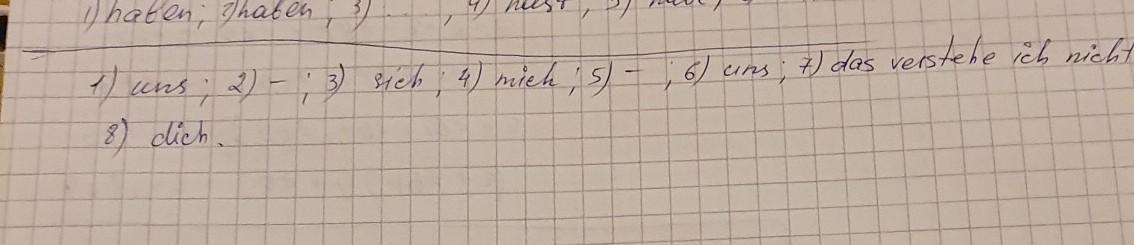 1) haben; 2) haben; 3) ..., 4) hast, 5)
1) uns; 2) - ; 3) sich; 4) mich; 5) - ; 6) uns; 7) das verstehe ich nicht
8) dich.